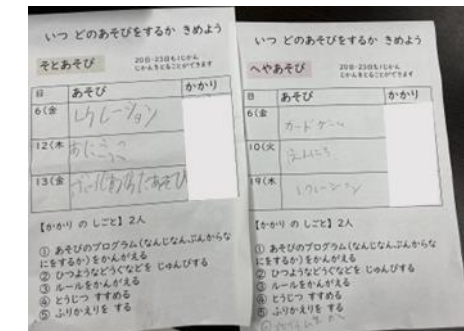 いつ どのあそびをするか きめよう
そとあそび
20日-23日も1じかん
じかんをとることができます
日 あそび かかり
6(金 レクレーション
12(木
13(金
【かかり の しごと】2人
① あそびのプログラム(なんじなんぷんからな
にをするか)をかんがえる
② ひつようなどうぐなどを じゅんびする
③ ルールをかんがえる
④ とうじつ すすめる
⑤ ふりかえりを する
いつ どのあそびをするか きめよう
へやあそび
20日-23日も1じかん
じかんをとることができます
日 あそび かかり
6(金 カードゲーム
10(火
19(木
【かかり の しごと】2人
① あそびのプログラム(なんじなんぷんからな
にをするか)をかんがえる
② ひつようなどうぐなどを じゅんびする
③ ルールをかんがえる
④ とうじつ すすめる
⑤ ふりかえりを する